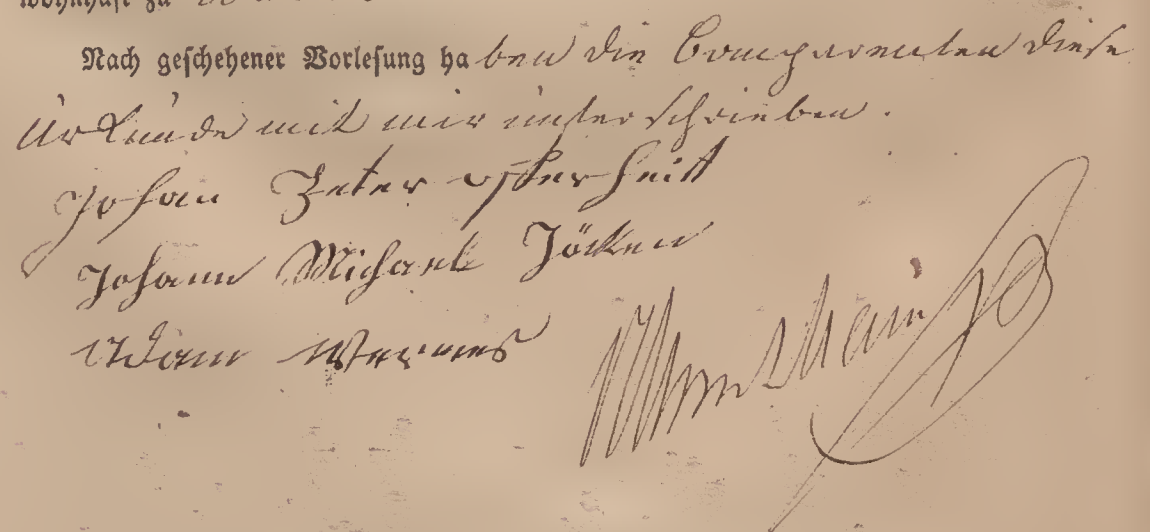 wohnhaft zu
Nach geschehener Vorlesung haben die Comparenten diese
Urkunde mit mir unterschrieben.
Johan Peter osterheitt
Johann Michael Jöcken
Adam Wernes